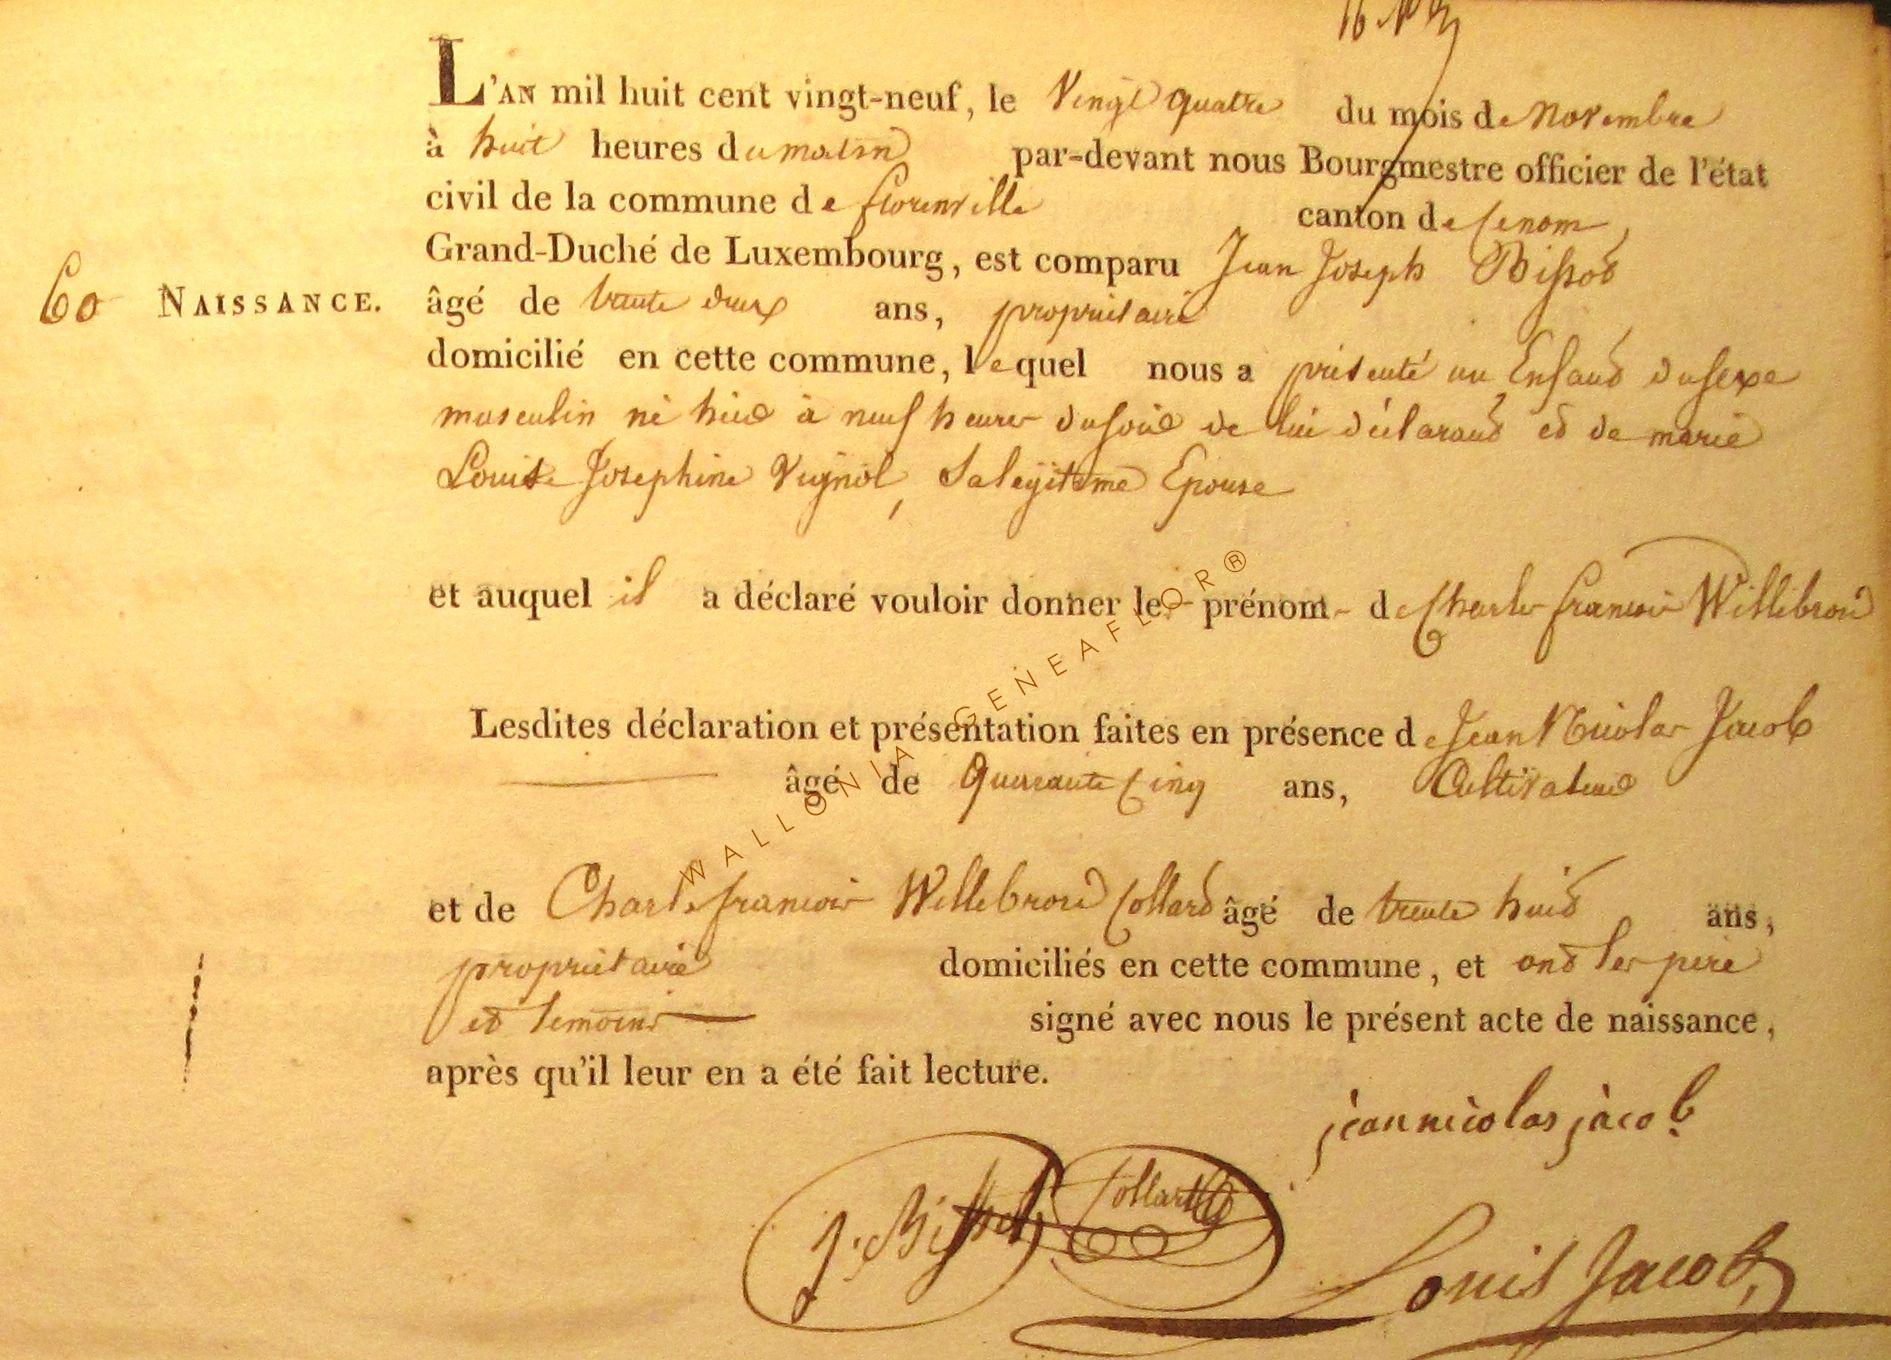 L'AN mil huit cent vingt-neuf, le Vingt quatre du mois de Novembre
à huit heures du matin par-devant nous Bourgmestre officier de l'état
civil de la commune de florenville canton de
Grand-Duché de Luxembourg, est comparu Jean Joseph Bissot
60 NAISSANCE. âgé de trente deux ans, propriétaire
domicilié en cette commune, lequel nous a présenté un Enfant du sexe
masculin né hier à neuf heures du soir de lui déclarant et de marie
Louise Josephine Vignol, Sa legitime Epouse
et auquel il a déclaré vouloir donner le prénom de Charles francois Willibrord
Lesdites déclaration et présentation faites en présence de Jean Nicolas Jacob
âgé de Quarante Cinq ans, Cultivateur
et de Charles francois Willebrord Collard âgé de trente huit ans,
propriétaire domiciliés en cette commune, et ont les pere
et temoins signé avec nous le présent acte de naissance,
après qu'il leur en a été fait lecture.
jean nicolas jacob
J. Bissot Collard
Louis Jacob
WALLONIA GENEAFLOR®